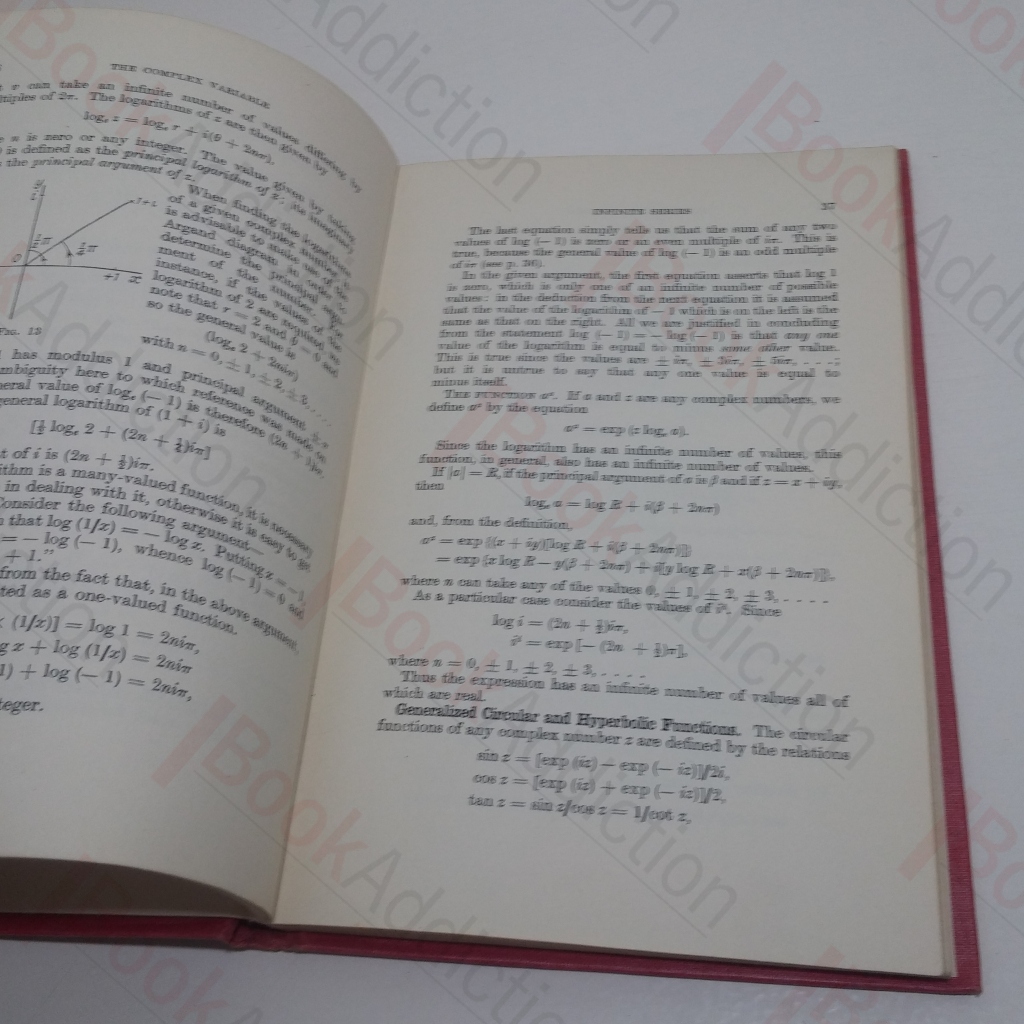 THE COMPLEX VARIABLE
v can take an infinite number of values differing by
tiples of 2π. The logarithms of z are then given by
logₑ z = logₑ r + i(θ + 2nπ),
n is zero or any integer. The value given by taking
is defined as the principal logarithm of z; its imaginary
the principal argument of z.
When finding the logarithms
of a given complex number it
is advisable to make use of the
Argand diagram in order to
determine the principal argu-
ment of the number. For
instance, if the values of the
logarithm of 2 are required we
note that r = 2 and θ = 0, and
so the general value is
(logₑ 2 + 2niπ)
with n = 0, ± 1, ± 2, ± 3, . . . .
y
i
1+i
½π
¼π
O
+1 x
FIG. 13
has modulus 1 and principal argument ± π
mbiguity here to which reference was made on
neral value of logₑ (− 1) is therefore (2n + 1)iπ.
general logarithm of (1 + i) is
[½ logₑ 2 + (2n + ¼)iπ]
t of i is (2n + ½)iπ.
ithm is a many-valued function, it is necessary
in dealing with it, otherwise it is easy to get
Consider the following argument—
n that log (1/z) = − log z. Putting z = − 1,
= − log (− 1), whence log (− 1) = 0 and
+ 1.”
from the fact that, in the above argument,
ted as a one-valued function.
× (1/z)] = log 1 = 2niπ,
g z + log (1/z) = 2niπ
1) + log (− 1) = 2niπ,
teger.
INFINITE SERIES 37
The last equation simply tells us that the sum of any two
values of log (− 1) is zero or an even multiple of iπ. This is
true, because the general value of log (− 1) is an odd multiple
of iπ (see p. 36).
In the given argument, the first equation asserts that log 1
is zero, which is only one of an infinite number of possible
values; in the deduction from the next equation it is assumed
that the value of the logarithm of − 1 which is on the left is the
same as that on the right. All we are justified in concluding
from the statement log (− 1) = − log (− 1) is that any one
value of the logarithm is equal to minus some other value.
This is true since the values are ± iπ, ± 3iπ, ± 5iπ, . . . ;
but it is untrue to say that any one value is equal to
minus itself.
THE FUNCTION aᶻ. If a and z are any complex numbers, we
define aᶻ by the equation
aᶻ = exp (z logₑ a).
Since the logarithm has an infinite number of values, this
function, in general, also has an infinite number of values.
If |a| = R, if the principal argument of a is β and if z = x + iy,
then
logₑ a = log R + i(β + 2nπ)
and, from the definition,
aᶻ = exp {(x + iy)[log R + i(β + 2nπ)]}
= exp {x log R − y(β + 2nπ) + i[y log R + x(β + 2nπ)]},
where n can take any of the values 0, ± 1, ± 2, ± 3, . . . .
As a particular case consider the values of iⁱ. Since
log i = (2n + ½)iπ,
iⁱ = exp [− (2n + ½)π],
where n = 0, ± 1, ± 2, ± 3, . . . . .
Thus the expression has an infinite number of values all of
which are real.
Generalized Circular and Hyperbolic Functions. The circular
functions of any complex number z are defined by the relations
sin z = [exp (iz) − exp (− iz)]/2i,
cos z = [exp (iz) + exp (− iz)]/2,
tan z = sin z/cos z = 1/cot z,